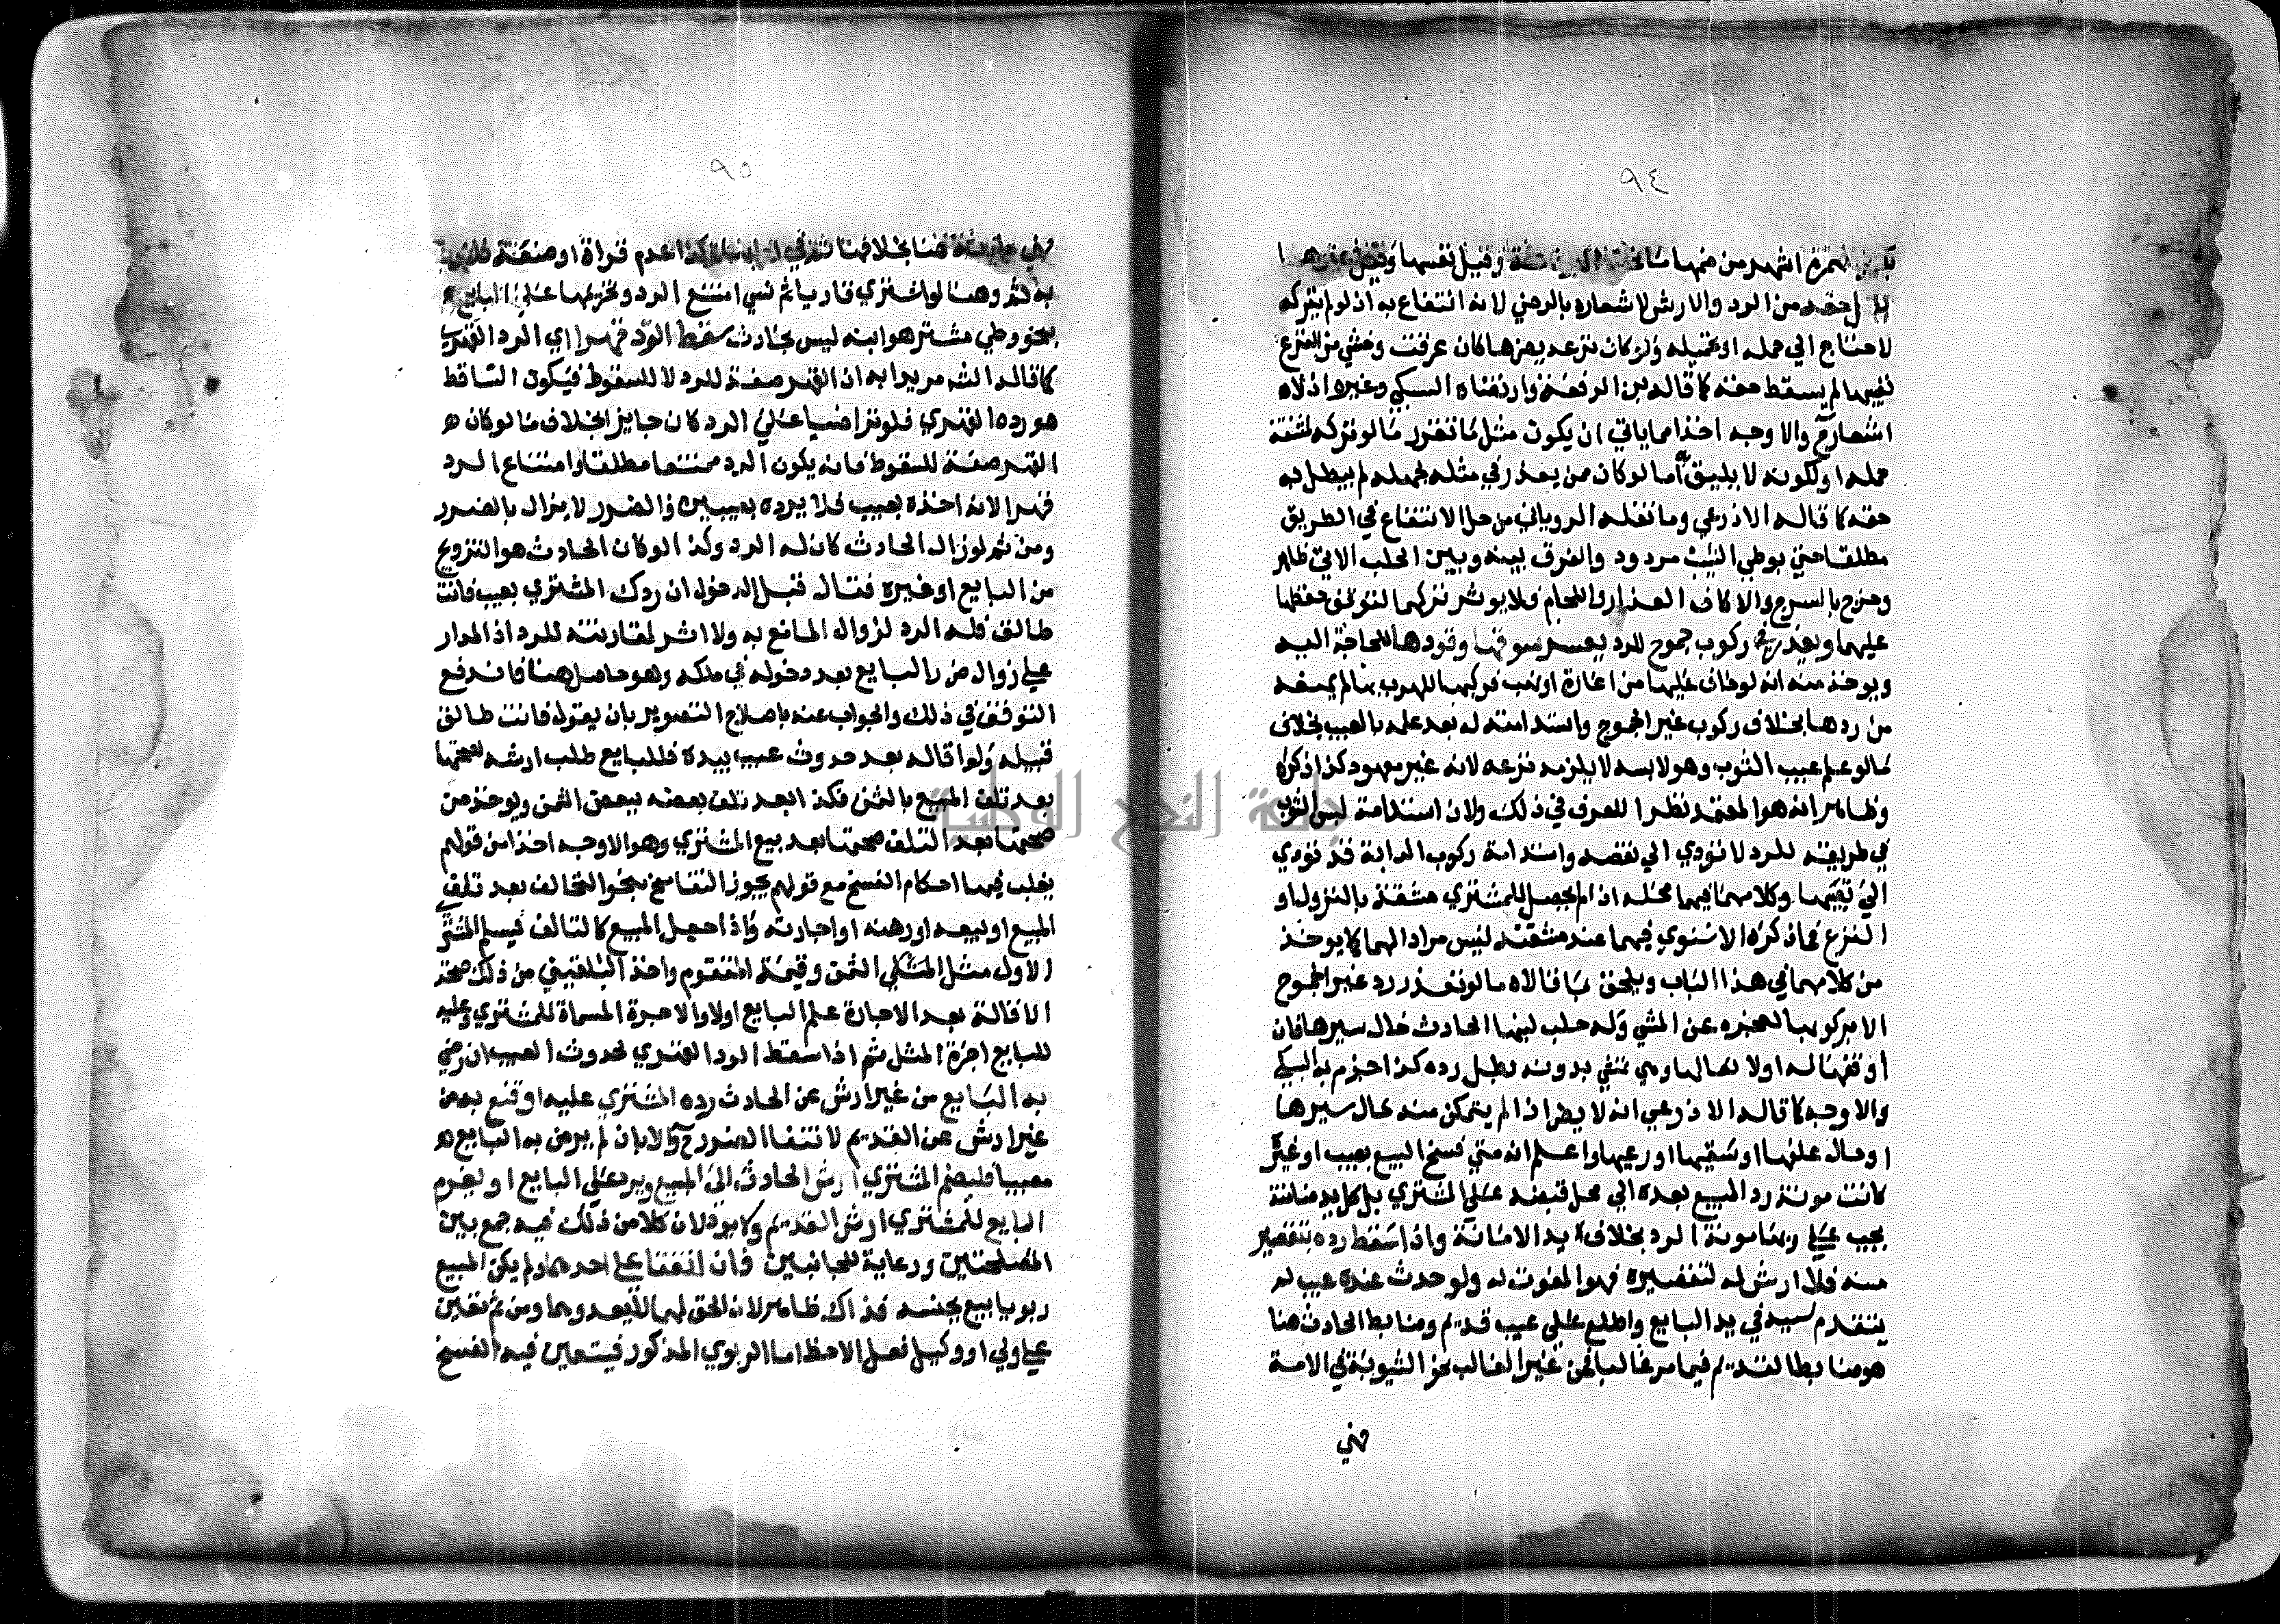 ٩٤
من الرد والارش لا شعاره بالرضي لانه انتفاع به اذ لو لم يتركه
لاحتاج الي حمله او تحميله ولو كان نزعه يضرها كان عرقت وخشي من النزع
تعيبها لم يسقط حقه كما قاله بن الرفعة وارتضاه السبكي وغيره اذ لا
اشعارح والاوجه اخذا مما ياتي ان يكون مثل ما تقرر ما لو تركه لمشقة
حمله او لكونه لا يليق به اما لو كان ممن يعذر في مثله لجهله لم يبطل به
حقه كما قاله الاذرعي وما نقله الروياني من حل الانتفاع في الطريق
مطلقا حتي بوطي الثيب مردود والفرق بينه وبين الحلب الاتي ظاهر
وخرج بالسرج والاكاف العذار واللجام فلا يوثر تركهما لتوقف حفظها
عليهما ويعذر في ركوب جموح للرد يعسر سوقها وقودها للحاجة اليه
ويوخذ منه انه لو خاف عليها من اغارة او نهب فركبها للهرب بها لم يمنعه
من ردها بخلاف ركوب غير الجموح واستدامته له بعد علمه بالعيب بخلاف
ما لو علم عيب الثوب وهو لابسه لا يلزمه نزعه لانه غير معهود كذا ذكراه
وظاهر انه هو المعتمد نظرا للعرف في ذلك ولان استدامة لبس الثوب
في طريقه للرد لا تودي الي نقصه واستدامة ركوب الدابة قد تودي
الي تعيبها وكلامهما فيهما محله اذا لم يحصل للمشتري مشقة بالنزول او
النزع فما ذكره الاسنوي فيهما عند مشقته ليس مرادا لهما كما يوخذ
من كلامهما في هذا الباب ويلحق بما قالاه ما لو تعذر رد غير الجموح
الا بركوبها لعجزه عن المشي وله حلب لبنها الحادث حال سيرها فان
اوقفها له او لانعالها وهي تمشي بدونه بطل رده كذا جزم به السبكي
والاوجه كما قاله الاذرعي انه لا يضر اذا لم يتمكن منه حال سيرها
او حال علفها او سقيها او رعيها واعلم انه متي فسخ البيع بعيب او غيره
كانت مونة رد المبيع بعده الي محل قبضه علي المشتري بل كل يد ضامنة
يجب علي ربها مونة الرد بخلاف يد الامانة واذا سقط رده بتقصير
منه فلا ارش له لتقصيره فهو المفوت له ولو حدث عنده عيب لم
يتقدم سببه في يد البايع واطلع علي عيب قديم وضابط الحادث هنا
هو ضابط القديم فيما مر غالبا فمن غير الغالب نحو الثيوبة في الامة
فهي
٩٥
به ثم وهنا لو اشتري قاريا ثم نسي امتنع الرد وتحريمها علي البايع
بنحو وطي مشتر هو ابنه ليس بحادث سقط الرد قهرا اي الرد القهري
كما قاله الشم مريدا به ان القهر صفة للرد لا للسقوط فيكون الساقط
هو رده القهري فلو تراضيا علي الرد كان جايزا بخلاف ما لو كان
القهر صفة للسقوط فانه يكون الرد ممتنعا مطلقا وامتناع الرد
قهرا لانه اخذه بعيب فلا يرده بعيبين والضرر لا يزال بالضرر
ومن ثم لو زال الحادث كان له الرد وكذا لو كان الحادث هو التزويج
من البايع او غيره فقال قبل الدخول ان ردك المشتري بعيب فانت
طالق فله الرد لزوال المانع به ولا اثر لمقارنته للرد اذ المدار
علي زوال ضرر البايع بعد دخوله في ملكه وهو حاصل هنا فاندفع
التوقف في ذلك والجواب عنه باصلاح التصوير بان يقول فانت طالق
قبيله ولو اقاله بعد حدوث عيب بيده فللبايع طلب ارشه لصحتها
بعد تلف المبيع بالثمن فكذا بعد تلف بعضه ببعض الثمن ويوخذ من
صحتها بعد التلف صحتها بعد بيع المشتري وهو الاوجه اخذا من قولهم
يغلب فيها احكام الفسخ مع قولهم يجوز التفاسخ بنحو التحالف بعد تلف
المبيع او بيعه او رهنه او اجارته واذا جعل المبيع كالتالف فيسلم المشتري
الاول مثل المثلي الثمن وقيمة المتقوم واخذ البلقيني من ذلك صحة
الاقالة بعد الاجارة علم البايع او لا والاجرة المسماة للمشتري وعليه
للبايع اجرة المثل ثم اذا سقط الرد القهري لحدوث العيب ان رضي
به البايع من غير ارش عن الحادث رده المشتري عليه او قنع به من
غير ارش عن القديم لانتفا الضررح والا بان لم يرض به البايع
معيبا فليضم المشتري ارش الحادث الي المبيع ويرد علي البايع او ليغرم
البايع للمشتري ارش القديم ولا يرد لان كلا من ذلك فيه جمع بين
المصلحتين ورعاية للجانبين فان اتفقا علي احدهما ولم يكن المبيع
ربويا بيع بجنسه فذاك ظاهر لان الحق لهما لا يعدوهما ومن ثم تعين
علي ولي او وكيل فعل الاحظ اما الربوي المذكور فيتعين فيه الفسخ